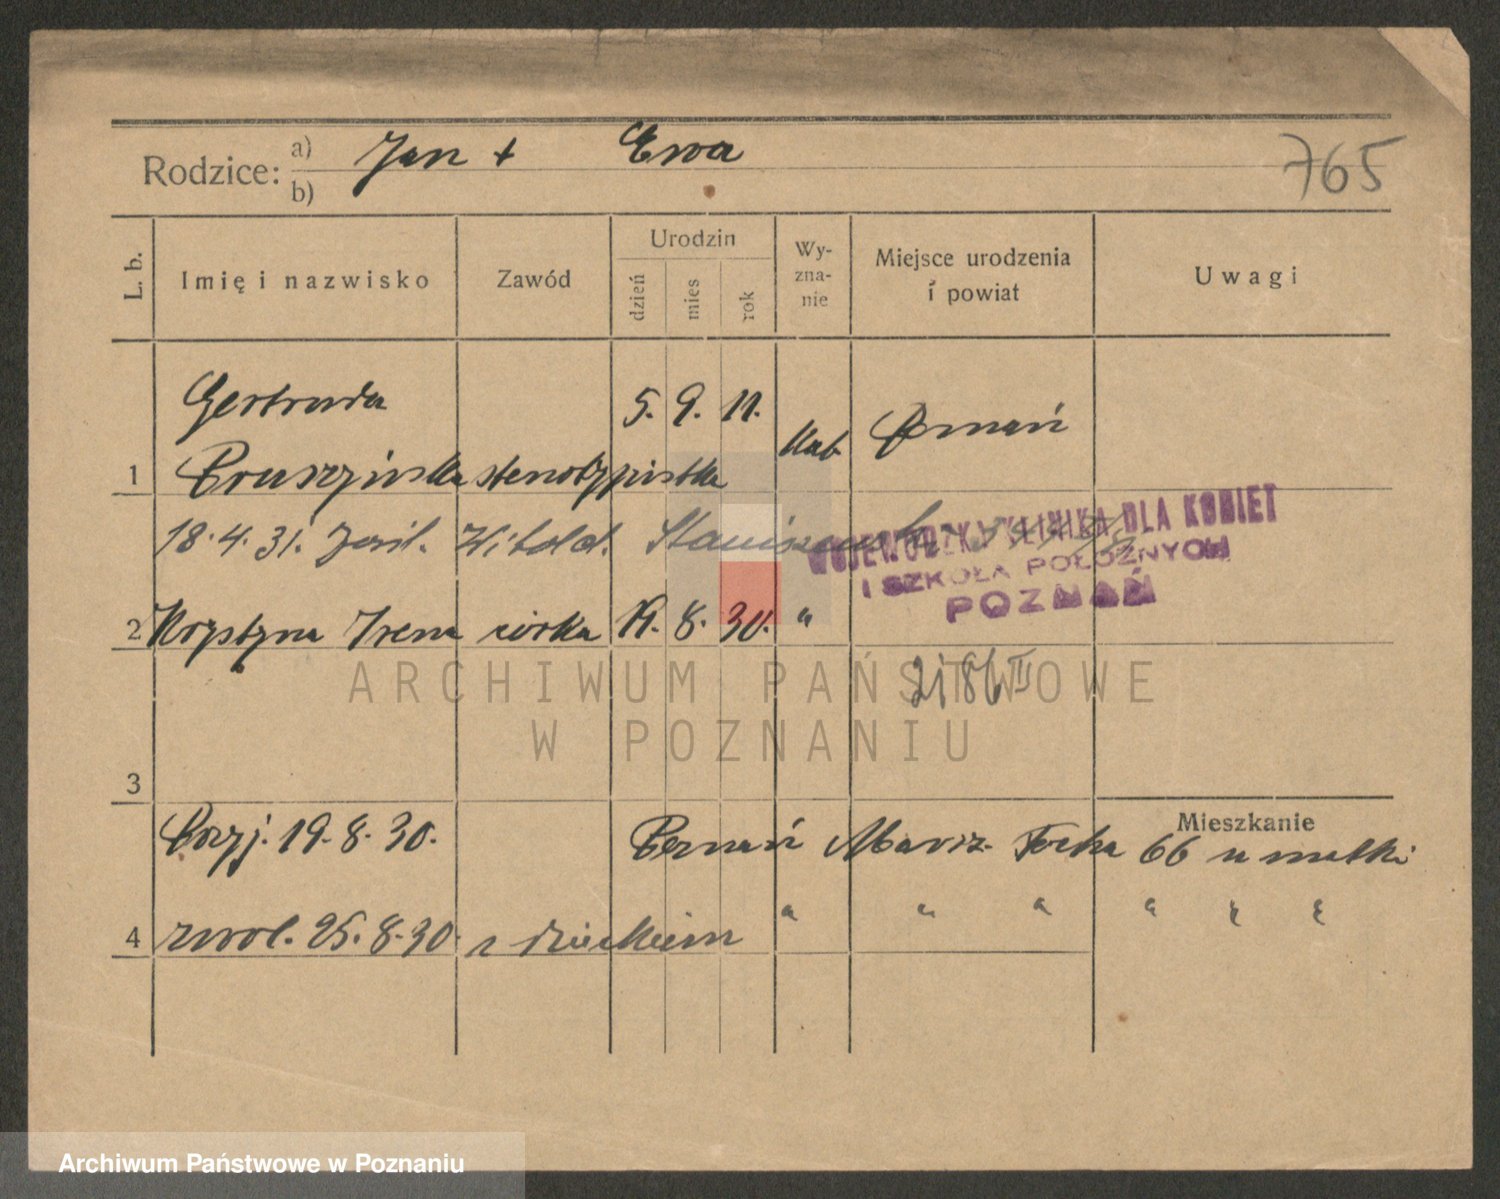 Rodzice: a) Jan + Ewa
b)
765
L. b.
Imię i nazwisko
Zawód
Urodzin
dzień
mies
rok
Wy-
zna-
nie
Miejsce urodzenia
i powiat
Uwagi
Gertruda
5. 9. 11.
Poznań
kat
1
Pruszyńska stenotypistka
18. 4. 31. Witold.
WOJEWÓDZKA KLINIKA DLA KOBIET
I SZKOŁA POŁOŻNYCH
POZNAŃ
2 Krystyna Irena córka 19. 8. 30. "
ARCHIWUM PAŃSTWOWE
W POZNANIU
2186 II
3
Mieszkanie
Przyj. 19. 8. 30. Poznań Marsz. Focha 66 u matki
4 zwol. 25. 8. 30. z dzieckiem " " " " " "
Archiwum Państwowe w Poznaniu